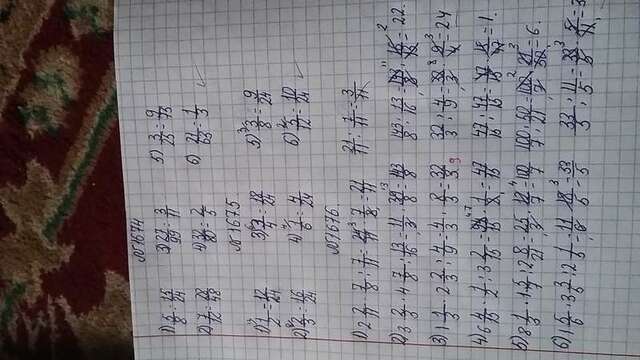 №1674
1) 5/8 = 15/24 3) 27/99 = 3/11 5) 3/25 = 9/75
2) 7/12 = 28/48 4) 32/80 = 2/5 6) 21/63 = 1/3
№1675
1) 1/2 = 12/24 3) 3/4 = 18/24 5) 3/8 = 9/24
2) 2/3 = 16/24 4) 1/6 = 4/24 6) 5/12 = 10/24
№1676.
1) 2 2/11 · 7/8 : 7/11 = 24/11 · 7/8 = 21/11 21/11 : 7/11 = 3/11
2) 3 2/3 · 4 7/8 : 13/16 = 11/3 · 39/8 = 143/8 143/8 : 13/16 = 143/8 · 16/13 = 22.
3) 1 1/3 · 2 2/3 : 4/9 = 4/3 · 8/3 = 32/3 32/3 : 4/9 = 32/3 · 9/4 = 24
4) 6 4/15 · 1/2 : 3 2/15 = 94/15 · 1/2 = 47/15 47/15 : 47/15 = 47/15 · 15/47 = 1.
5) 8 1/3 · 1 5/7 : 2 8/21 = 25/3 · 12/7 = 100/7 100/7 : 50/21 = 100/7 · 21/50 = 6.
6) 1 5/6 · 3 3/5 : 2 1/5 = 11/6 · 18/5 = 33/5 33/5 : 11/5 = 33/5 · 5/11 = 3